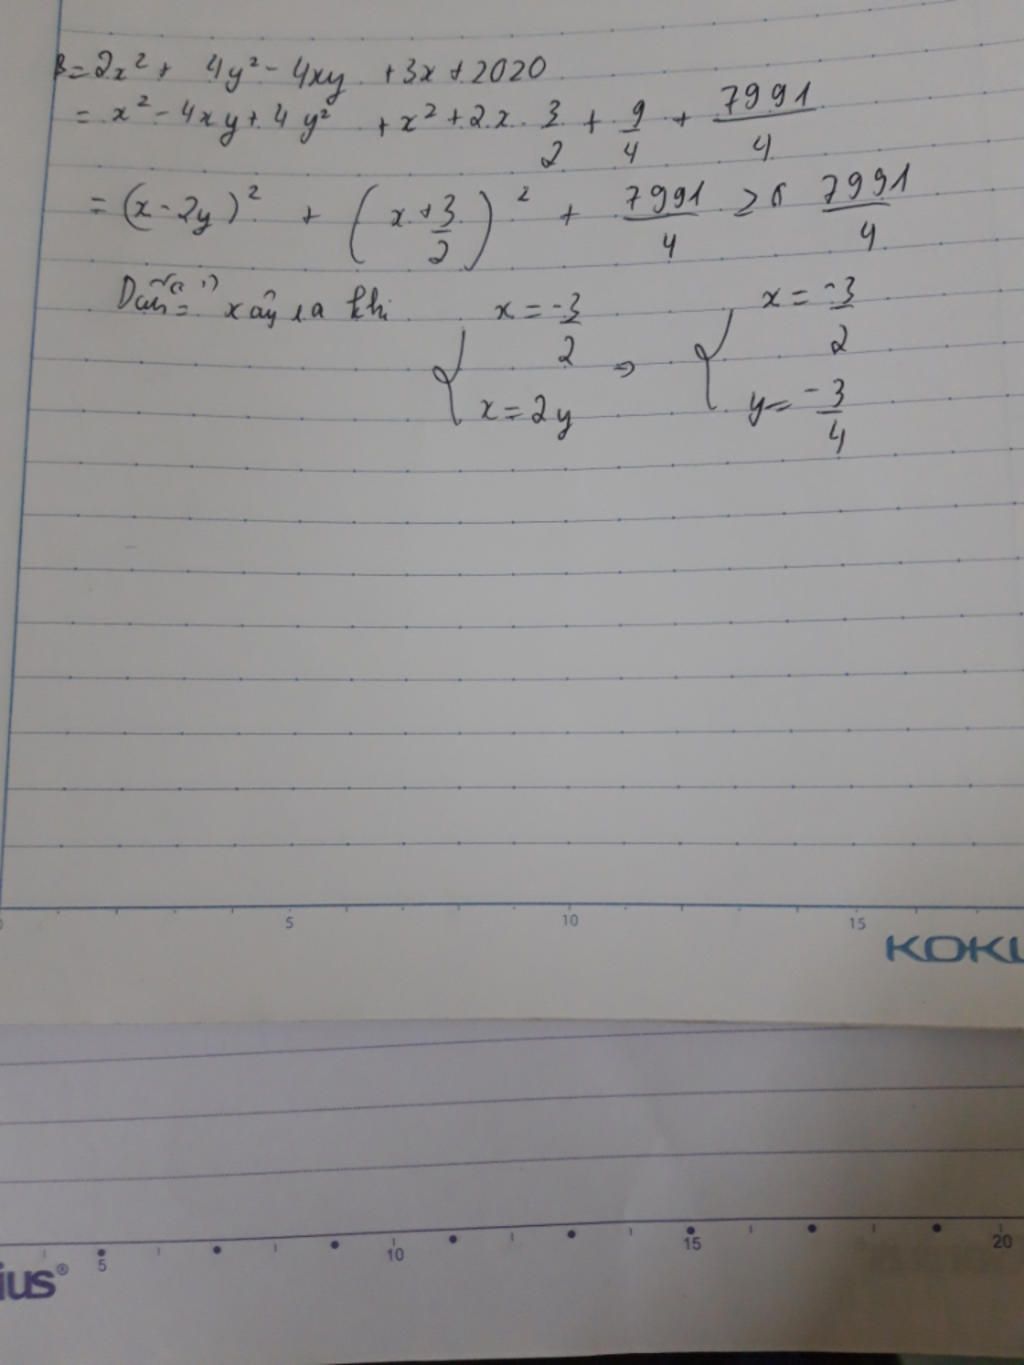 B=2x² + 4y² - 4xy + 3x + 2020
= x² - 4xy + 4y² + x² + 2x . 3/2 + 9/4 + 7991/4
= (x - 2y)² + (x + 3/2)² + 7991/4 ≥ 7991/4
Dấu "=" xảy ra khi { x = -3/2 ⇒ { x = -3/2
x = 2y y = -3/4
5 10 15
KOKU
5 10 15 20
ius®